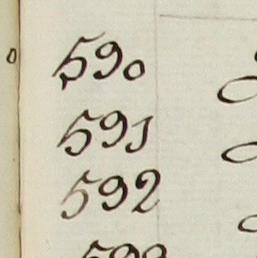 590
591
592